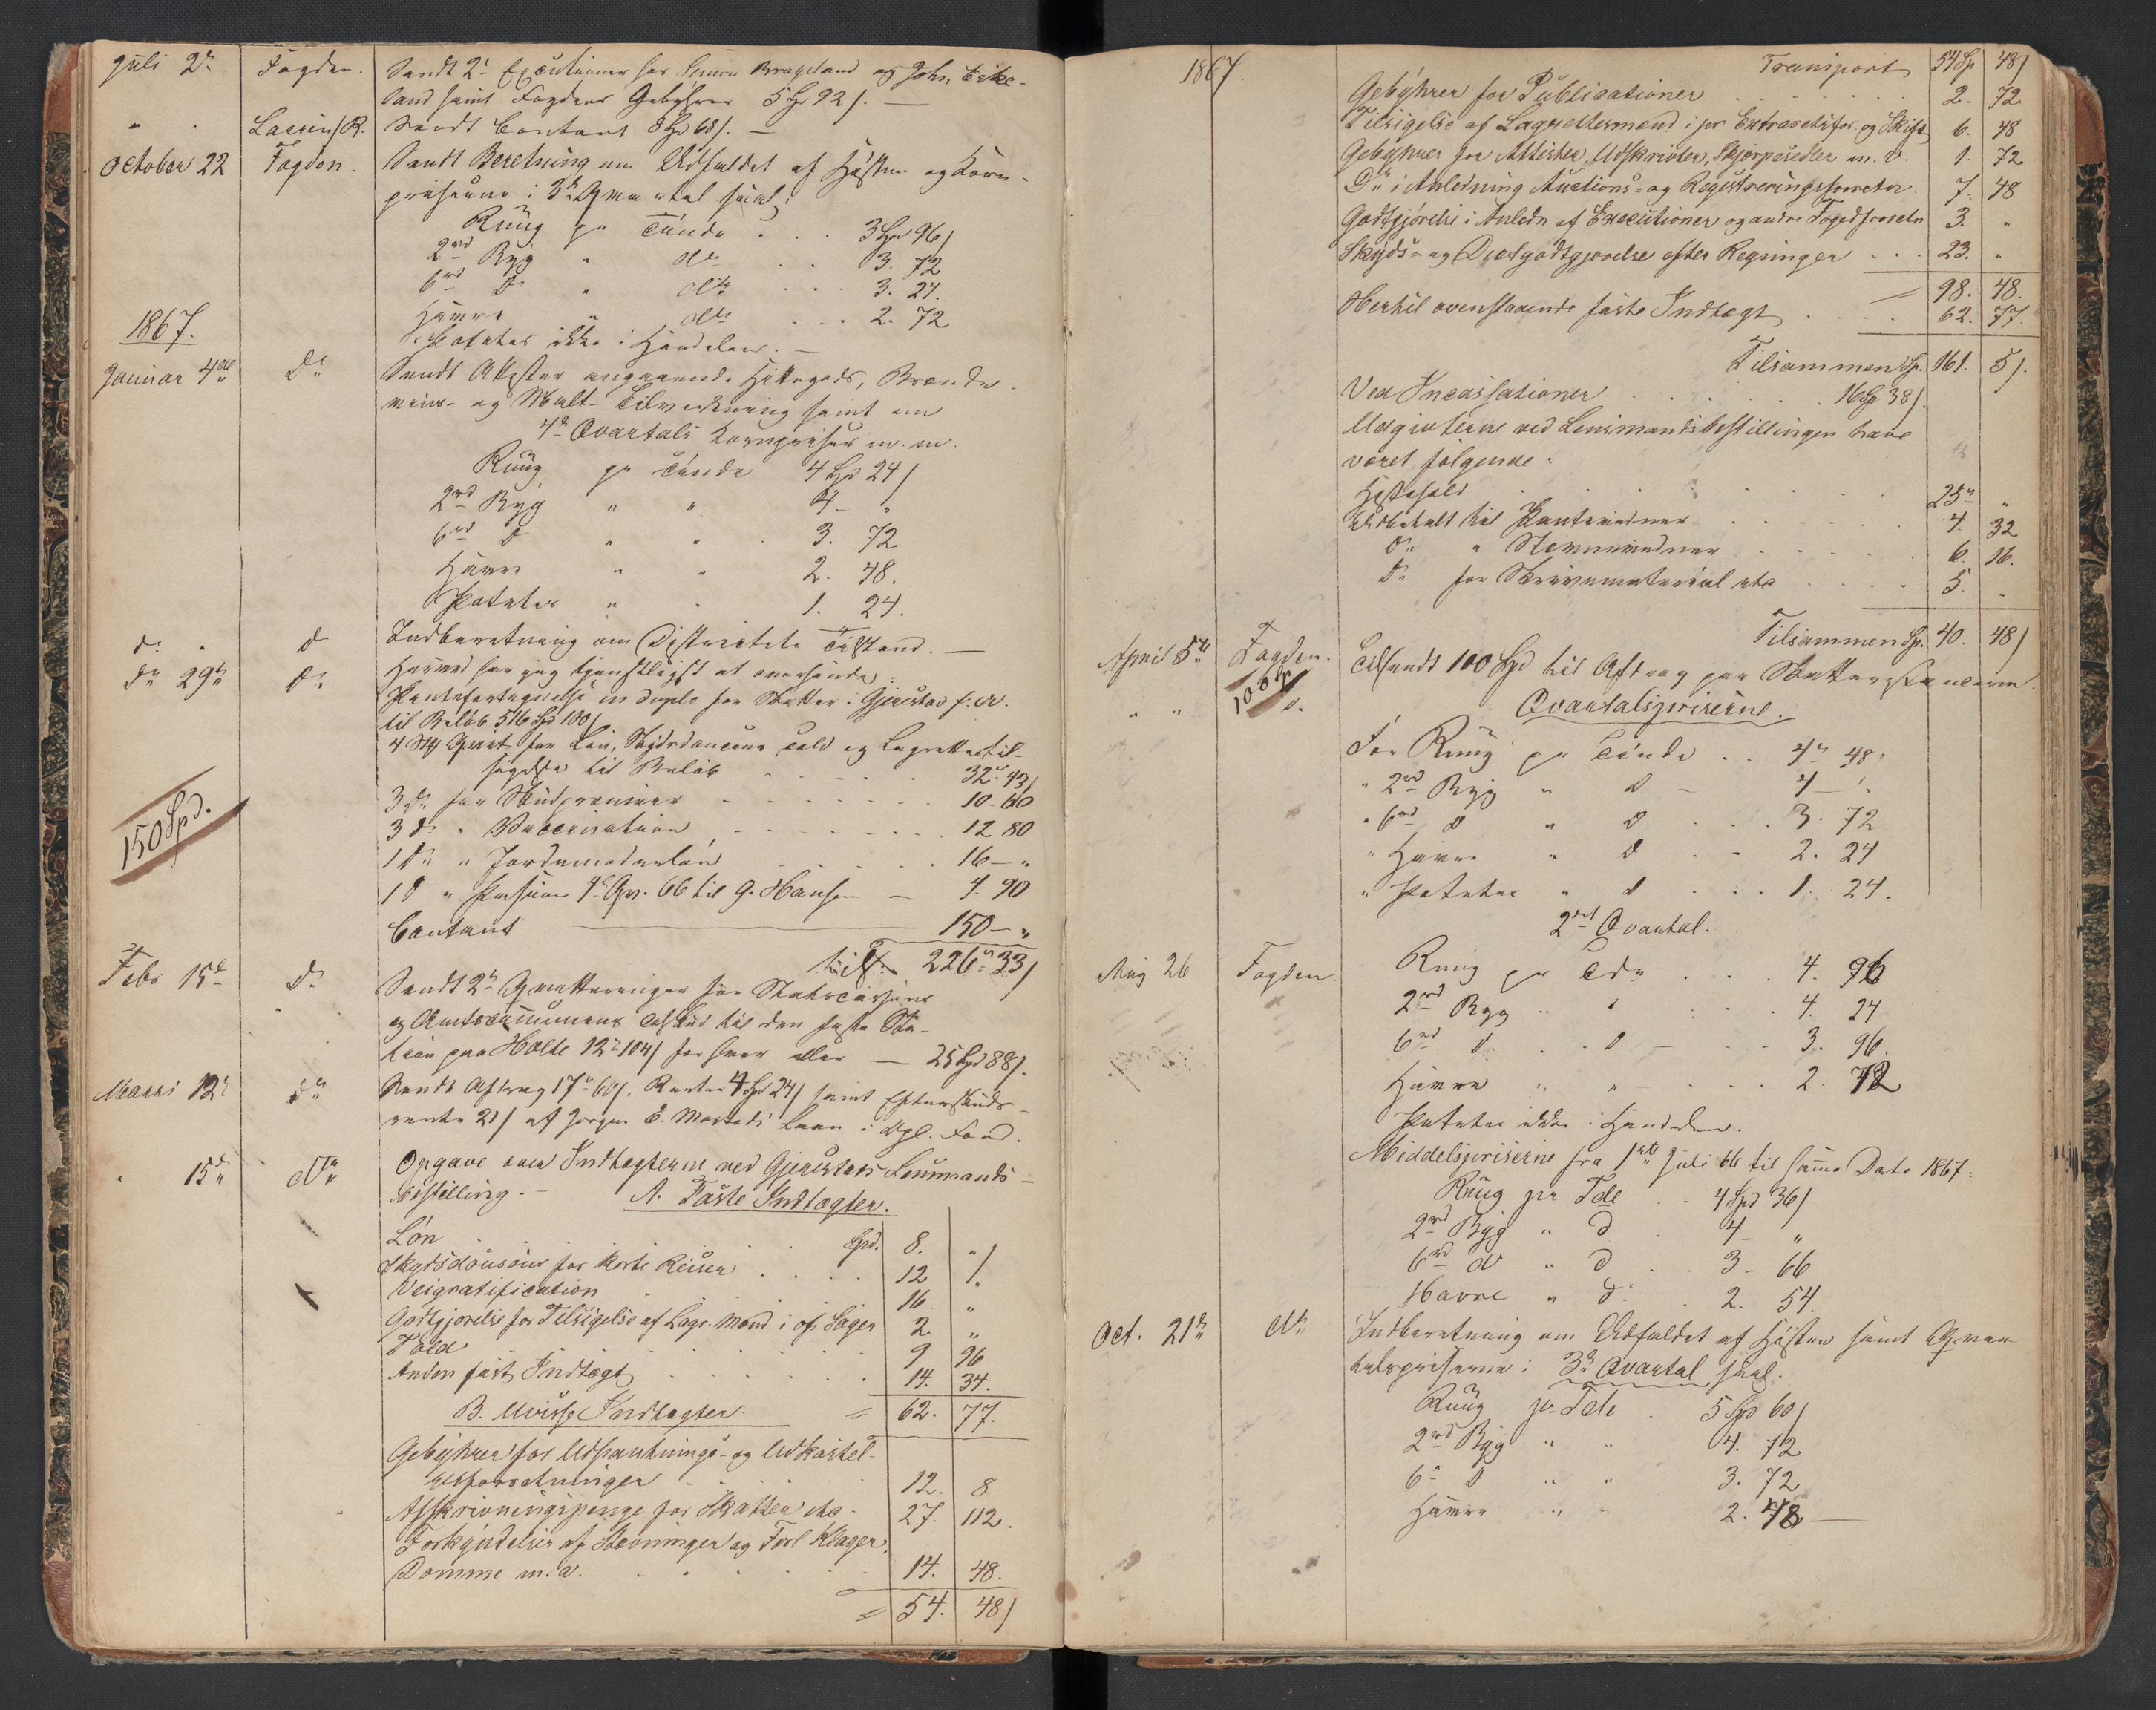 Juli 2n Fogden. Sendt 2de Executioner for Simon Brageland og John Eske-
land samt Fogdens Gebyhrer 5 Spd 92 /. —
" " Lassen / R. Sendt Contant 8 Spd 68 /. —
October 22 Fogden. Sendt Beretning om Udfaldet af Høsten og Korn-
priserne i 3de Qvartal saal;
Rüug pr Tönde . . . 3 Spd 96 /
2rd Byg " do . . 3. 72
6rd Do " do . . . 3. 24.
Havre " do . . . 2. 72
Potetes ikke i Handelen. —
1867.
Januar 4de Do Sendt Attester angaaende Hittegods, Brænde-
viins- og Malt-Tilvirkning samt om
4de Qvartals Kornpriser m. m.
Rüug pr Tönde 4 Spd 24 /
2rd Byg " " 4 — "
6rd D " " 3. 72
Havre " " 2. 48.
Potetes " " 1. 24.
d: " d Indberetning om Districtets Tilstand. —
do 29de do Herved har jeg tjenstligst at oversende:
Restefortegnelse in duplo for Skatter i Gjerestad f: A.
til Beløb 516 Spd 100 /
4 Stk Qvit. for Løn, Skydsdouceur Told og Lagrettestil-
sigelse til Beløb . . . . . 32" 43 /
3 do for Skudpræmier . . . . . . 10. 60
150 Spd.
3 do " Vaccination . . . . . . 12 80
1 do " Jordemoderløn . . . . . 16 — "
1 D " Pension 4de Qv. 66 til G. Hansen — 4. 90
Contant — 150 — "
tils. 226" 33 /
Febr 15de do Sendt 2de Qvitteringer for Statscassens
og Amtscommunens Tilskud til den faste Sta-
tion paa Holte 12" 104 / for hver eller — 25 Spd 88 /.
Marts 12te do Sendt Afdrag 17" 60 /. Renter 4 Spd 24 / samt Efterskuds-
rente 21 / af Jørgen E. Mostads Laan i Opl. Fond.
" 15de do Opgave over Indtægterne ved Gjerestads Lensmands-
bestilling. — A. Faste Indtægter.
Løn . . . . . . Spd. 8. " /
Skydsdousour for korte Reiser . . . . 12 "
Veigratification . . . . . . 16 "
Godtgjørelse for Tilsigelse af Lagr. Mænd i off. Sager 2 "
Told . . . . . . . 9 96
Anden fast Indtægt . . . . . . 14. 34.
B. Uvisse Indtægter = 62. 77.
Gebyhrer for Udpantnings- og Udkastel-
sesforretninger . . . . . 12. 8
Afskrivningspenge for Skatter etc. 27. 112.
Forkyndelser af Stevninger og Forl Klager.
Domme m. v. . . . . . . 14. 48.
= 54. 48 /
1867.
Transport 54 Sp 48 /
Gebyhrer for Publicationer . . . . . . 2. 72
Tilsigelse af Lagrettesmænd i pr Extraretsfor. og Skift 6. 48
Gebyhrer for Attester, Udskrivter, Skjørpesedler m. v. 1. 72
Do i Anledning Auctions- og Registreringsforretn 7. 48
Godtgjørelse i Anledn af Executioner og andre Fogedforretn 3. "
Skyds- og Diætgodtgjørelse efter Regninger . . . 23. "
= 98. 48.
Hertil ovenstaaende faste Indtægt . . . . 62. 77.
Tilsammen Sp. 161. 5 /.
Ved Incassationer . . . . . . 16 Sp 38 /.
Udgivterne ved Lensmandsbestillingen have
været følgende:
Hestehold . . . . . . . 25" "
Udbetalt til Pantevidner . . . . . . 4. 32
do " Stevnevidner . . . . . 6. 16.
do for Skrivematerial etc . . . . 5. "
Tilsammen Sp. 40. 48 /
April 5te Fogden. Tilsendt 100 Spd til Afdrag paa Skatterestancerne.
100 Sp
" " d. Qvartalspriserne.
For Rüug pr Tönde . . 4" 48 /
" 2rd Byg " d — 4 — "
" 6rd d " d . . . 3. 72
" Havre " d . . 2. 24
" Potetes " d . . . 1. 24.
2det Qvartal.
Aug 26 Fogden. Rüug pr Tde . . . 4. 96
2rd Byg " " . . . 4. 24
6rd d " d — . . 3. 96.
Havre " " — . . . 2. 72
Potetes ikke i Handelen.
Middelspriserne fra 1ste Juli 66 til samme Dato 1867:
Rüug pr Tde . . 4 Spd 36 /
2rd Byg " d 4 "
6rd d " d . . 3 — 66
Havre " d: . 2. 54.
Oct. 21de do Indberetning om Udfaldet af Høsten samt Qvar-
talspriserne i 3de Qvartal saal.
Rüug pr Tde . 5 Spd 60 /
2rd Byg " " 4. 72
6r d " " 3. 72
Havre " " 2. 48 —